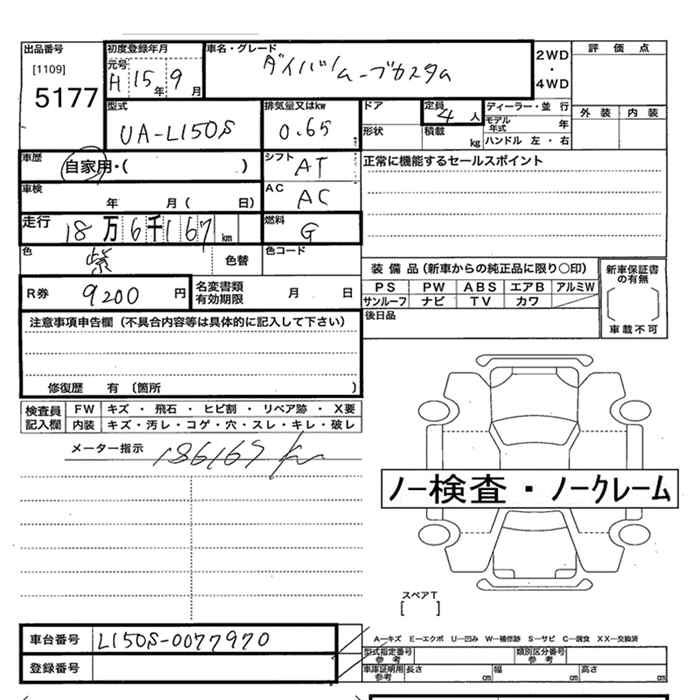 出品番号
[1109]
5177
初度登録年月
元号
H 15年 9月
車名・グレード
ダイハツムーブカスタム
2WD
・
4WD
評価点
外装 内装
型式
UA-L150S
排気量又はkw
0.65
ドア
形状
定員
4人
積載
kg
ディーラー・並行
モデル年式 年
ハンドル 左・右
車歴
自家用・( )
シフト
AT
正常に機能するセールスポイント
車検
年 月( 日)
AC
AC
走行
18万6千167km
燃料
G
色
紫
色替
色コード
R券 9200円
名変書類
有効期限
月 日
装備品(新車からの純正品に限り○印)
PS PW ABS エアB アルミW
サンルーフ ナビ TV カワ
後日品
新車保証書
の有無
車載不可
注意事項申告欄(不具合内容等は具体的に記入して下さい)
修復歴 有〔箇所 〕
検査員
記入欄
FW キズ・飛石・ヒビ割・リペア跡・X要
内装 キズ・汚レ・コゲ・穴・スレ・キレ・破レ
メーター指示
186167km
ノー検査・ノークレーム
スペアT
[ ]
車台番号 L150S-0077970
登録番号
A―キズ E―エクボ U―凹み W―補修跡 S―サビ C―腐食 XX―交換済
型式指定番号
参考
類別区分番号
参考
車庫証明用
参考
長さ cm 幅 cm 高さ cm